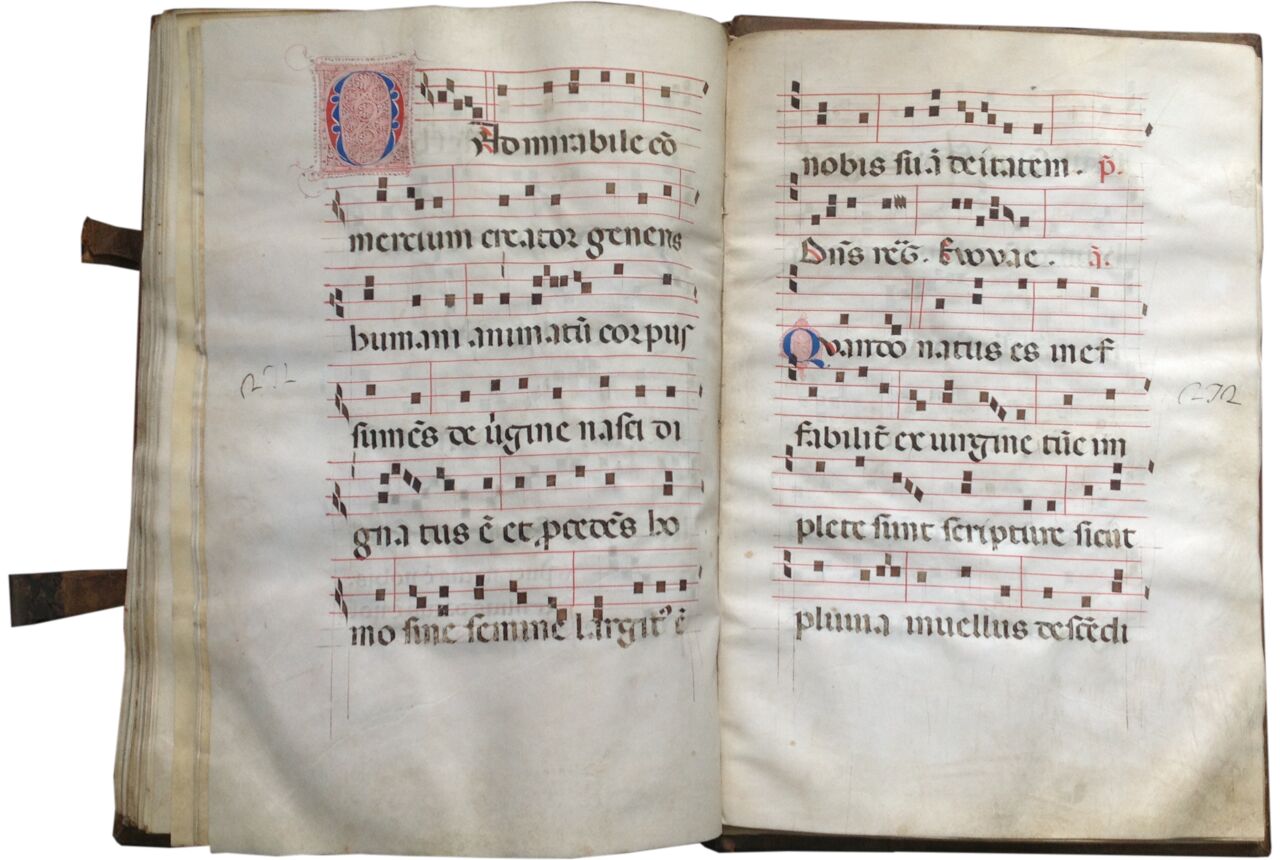 O Admirabile cō
mercium creator generis
humani animatū corpus
sumēs de ūgine nasci di
gnatus ē et procedēs ho
mo sine semine largitꝰ ē
nobis suā deitatem. p̄.
Dn̄s reḡ. Euouae. añ.
Quando natus es inef
fabilit̄ ex uirgine tūc im
plete sunt scripture sicut
pluuia inuellus descēdi